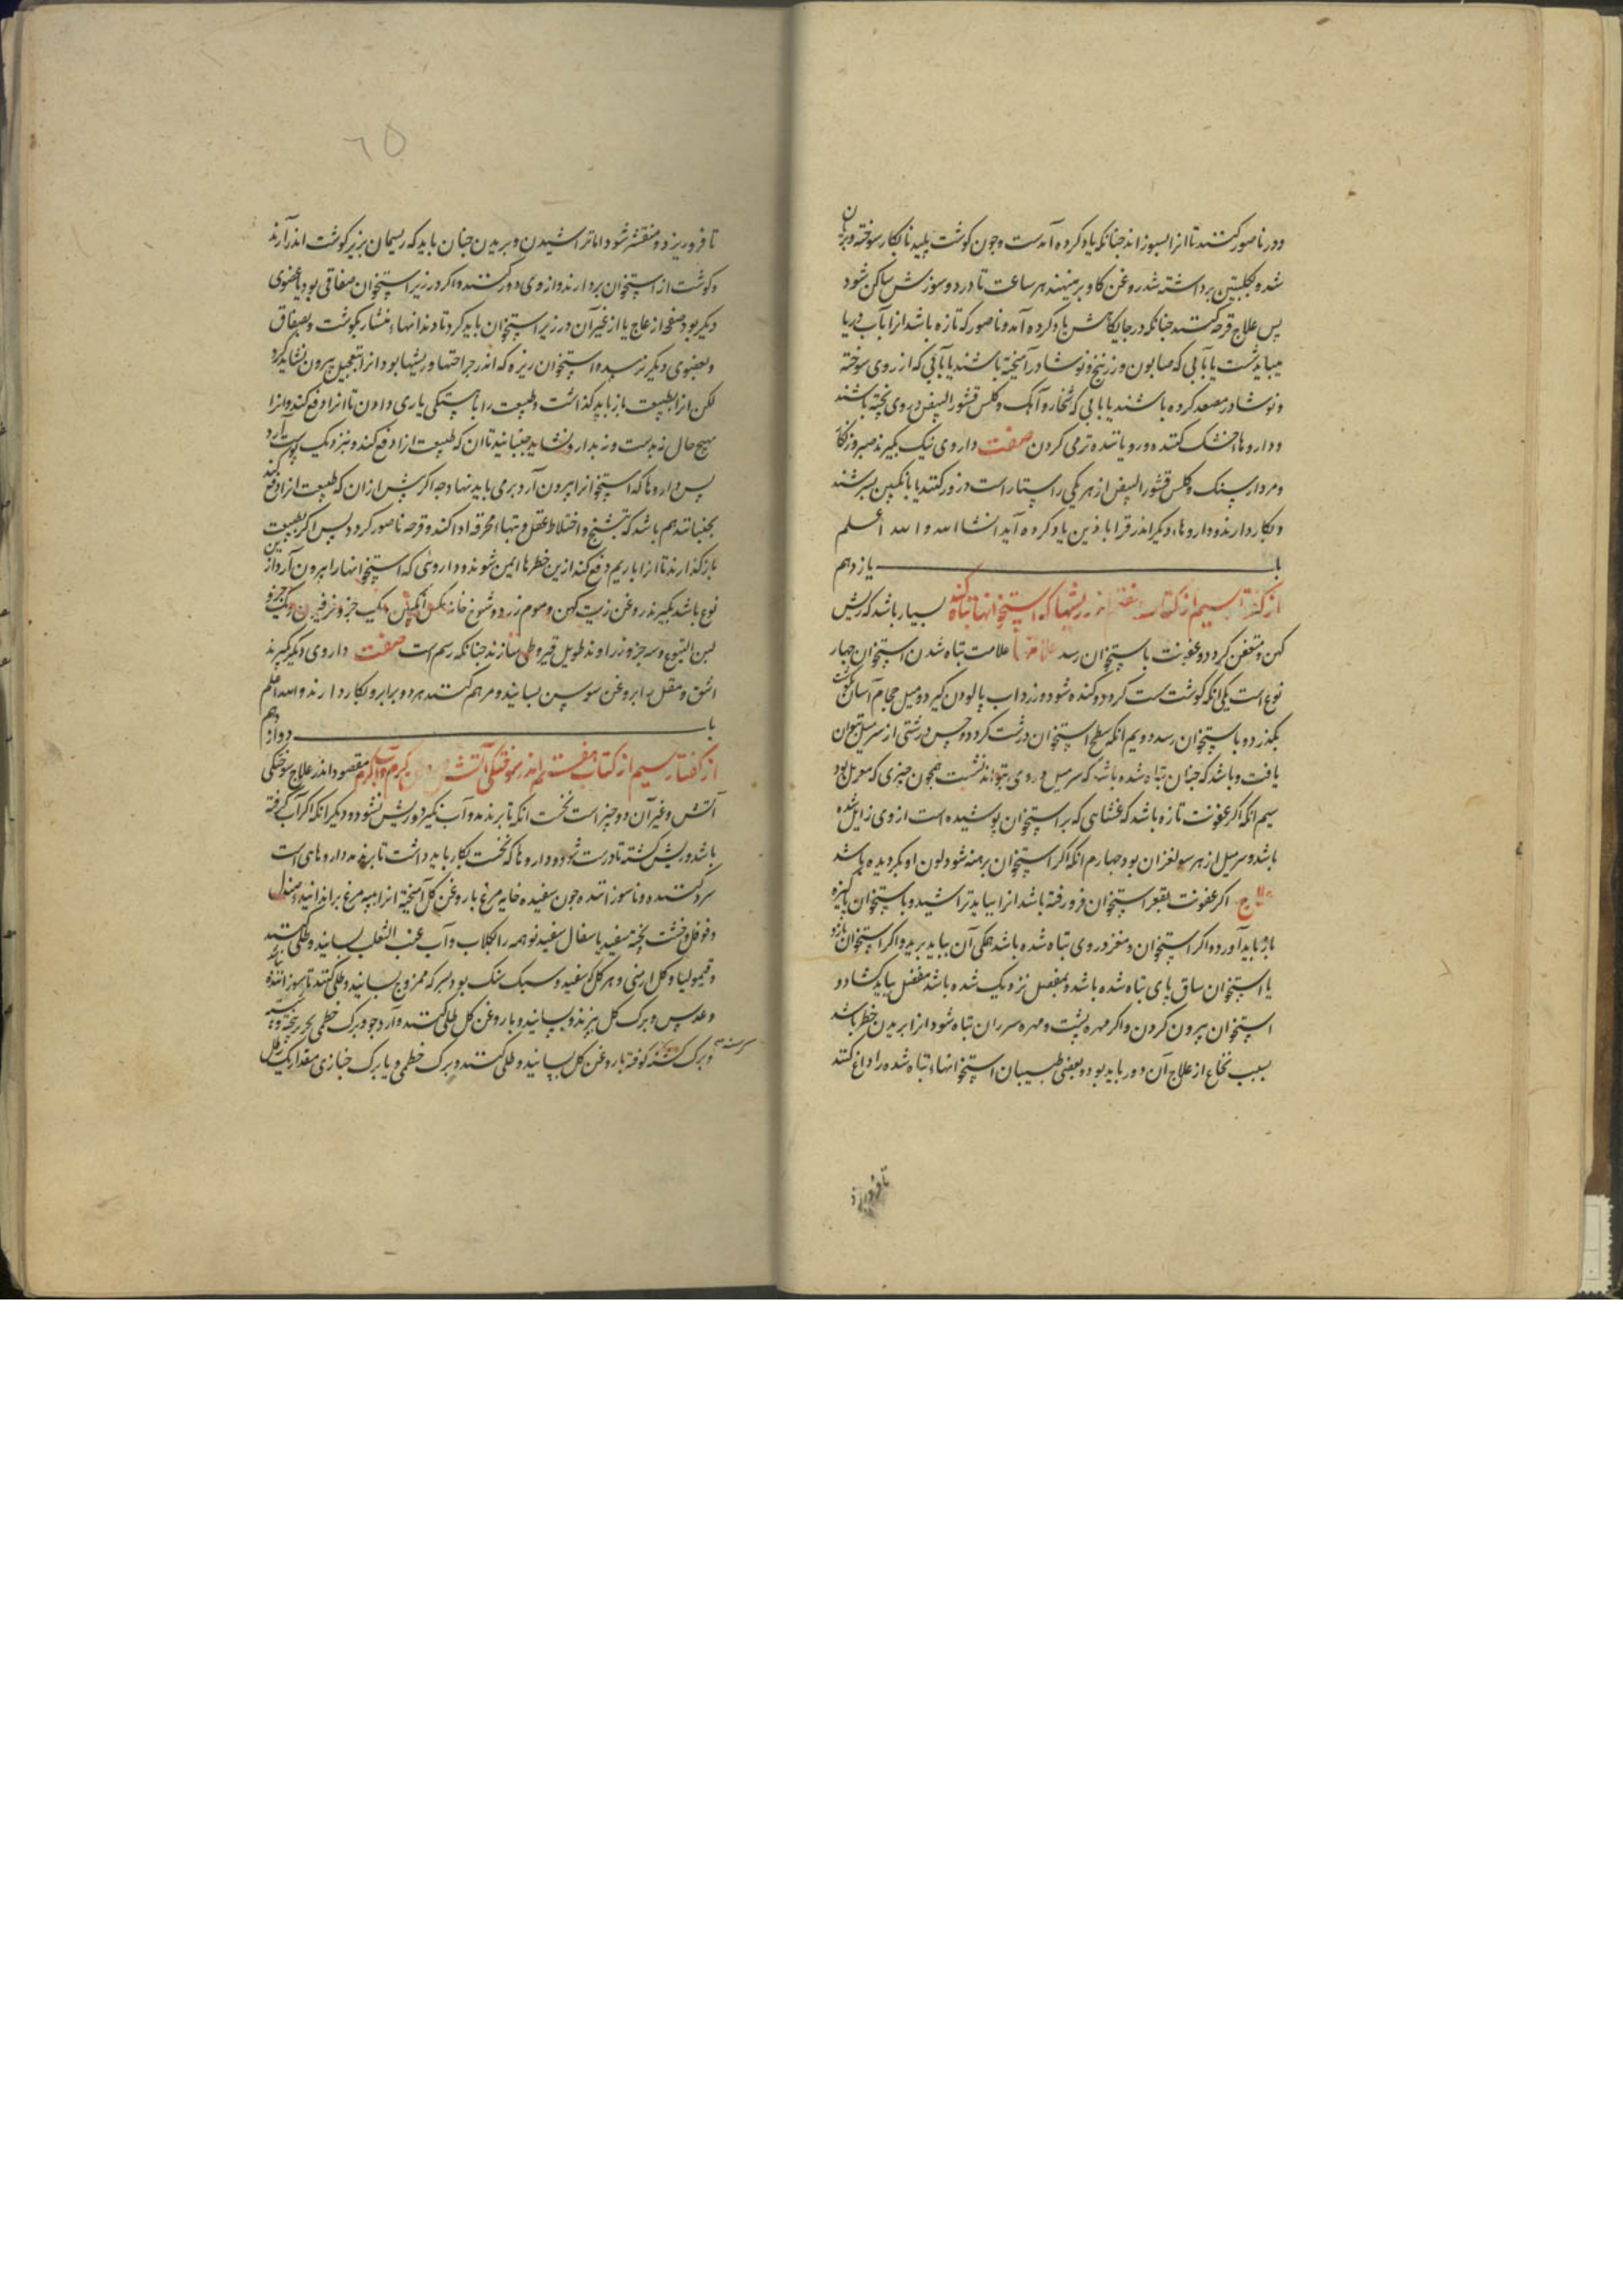 ودر ناصور کنند تا انرا بسوزاند جنانکه یاد کرده آمدست وجون کوشت پلید نابکار سوخته وبریان
شد وبکلبتین برداشته شد روغن کاو برمینهند هر ساعت تا درد وسوزش ساکن شود
پس علاج قرحه کنند جنانکه درجایکاهش یاد کرده آمد وناصور که تازه باشد انرا بآب دریا
میباید شست یا بآبی که صابون وزرنیخ ونوشادر آمیخته باشند یا بآبی که از روی سوخته
ونوشادر مصعد کرده باشند یا بابی که شخار وآهک وکلس قشور البیض در وی پخته باشند
وداروها خشک کننده ورویاننده نرمی کردن صفت داروی نیک بکیرند صبر وزنکار
ومرداسنک وکلس قشور البیض از هر یکی راستاراست درزور کنند یا بانکبین بسرشند
وبکار دارند وداروها دیکر اندر قراباذین یاد کرده آید انشاالله والله اعلم
باب یازدهم
از کفتار سیم از کتاب هفتم اندر ریشها که استخوانها تباه کند بسیار باشد که ریش
کهن ومتعفن کردد وعفونت باستخوان رسد علامتها علامت تباه شدن استخوان جهار
نوع است یکی انکه کوشت سست کردد وکنده شود وزرداب پالودن کیرد ومیل حجام آسان بکوشت
بکذرد وباستخوان رسد دویم انکه سطح استخوان درشت کردد وحس درشتی از سر میل بتوان
یافت وباشد که جنان تباه شده باشد که سر میل در وی بتواند نشست همجون جیزی که معرمل بود
سیم انکه اکر عفونت تازه باشد که غشایی که بر استخوان پوشیده است از وی زایل شده
باشد وسر میل از هر سو لغزان بود جهارم انکه اکر استخوان برهنه شود لون او بکردیده باشد
علاج اکر عفونت بقعر استخوان فرو رفته باشد انرا بیاید تراشید وباستخوان پاکیزه
باز باید آورد واکر استخوان ومغز در وی تباه شده باشد همکی آن بباید برید واکر استخوان بازو
یا استخوان ساق پای تباه شده باشد وبمفصل نزدیک شده باشد مفصل بباید کشاد و
استخوان بیرون کردن واکر مهره پشت ومهره سر ران تباه شود انرا بریدن خطر باشد
بسبب نخاع از علاج آن دور باید بود وبعضی طبیبان استخوانهاء تباه شده را داغ کنند
تا فرو ریزد
٦٥
تا فرو ریزد ومنقشر شود اما تراشیدن وبریدن جنان باید که ریسمان بزیر کوشت اندر آرند
وکوشت از استخوان بردارند واز وی دور کنند واکر در زیر استخوان صفاقی بود یا عضوی
دیکر بود صفحه از عاج یا از غیر آن در زیر استخوان باید کرد تا دندانهاء منشار بکوشت وبصفاق
وبعضوی دیکر نرسد واستخوان ریزه که اندر جراحتها وریشها بود انرا بتعجیل بیرون نشاید کرد
لکن انرا بطبیعت باز باید کذاشت وطبیعت را باهستکی یاری دادن تا انرا دفع کند وانرا
بهیج حال نه بدست ونه بدارو نشاید جنبانید تا ان که طبیعت انرا دفع کند ونزدیک پوست آرد
پس داروها که استخوانرا بیرون آرد برمی باید نهاد وجه اکر پیش از ان که طبیعت انرا دفع کند
بجنبانند هم باشد که تشنج واختلاط عقل وتبهاء محرقه ادا کند وقرحه ناصور کردد پس اکر بطبیعت
باز کذارند تا انرا با ریم دفع کند ازین خطرها ایمن شوند وداروئی که استخوانها را بیرون آرد ازین
نوع باشد بکیرند روغن زیت کهن وموم زرد وشونیز خانه مکس انکبین یک جزو وفرفیون ویک جزو
لبن الیتوع وسه جزو زراوند طویل قیروطی سازند جنانکه رسم است صفت داروی دیکر بکیرند
اشق ومقل برابر وغن سوسن بسایند ومرهم کنند هر دو برابر وبکار دارند والله اعلم
باب دوازدهم
از کفتار سیم از کتاب هفتم اندر سوختکی آتش وروغن کرم وآب کرم مقصود اندر علاج سوختکی
آتش وغیر آن دو جیز است نخست انکه تا برندمد وآب نکیرد وریش نشود ودیکر انکه اکر آب کرفته
باشد وریش کشته تا درست شود وداروها که نخست بکار باید داشت تا برندمد داروهای است
سرد کننده وناسوزاننده جون سفیده خایه مرغ با روغن کل آمیخته انرا بپر مرغ براندایند وصندل
وفوفل وخشت پخته سفید یا سفال سفید نو همه را بکلاب وآب عنب الثعلب بسایند وطلی کنند
وقیمولیا وکل ارمنی وهر کل که سفید وسبک سنک بود بسرکه ممزوج بسایند وطلی کنند تا بسوزاننده نباشد
وعدس وبرک کل بپزند وبسایند وبا روغن کل طلی کنند وآرد جو وبرک خطمی بحریر پخته
وبرک کشنه کوفته با روغن کل بسایند وطلی کنند وبرک خطمی ویا برک خبازی مقدار یک رطل